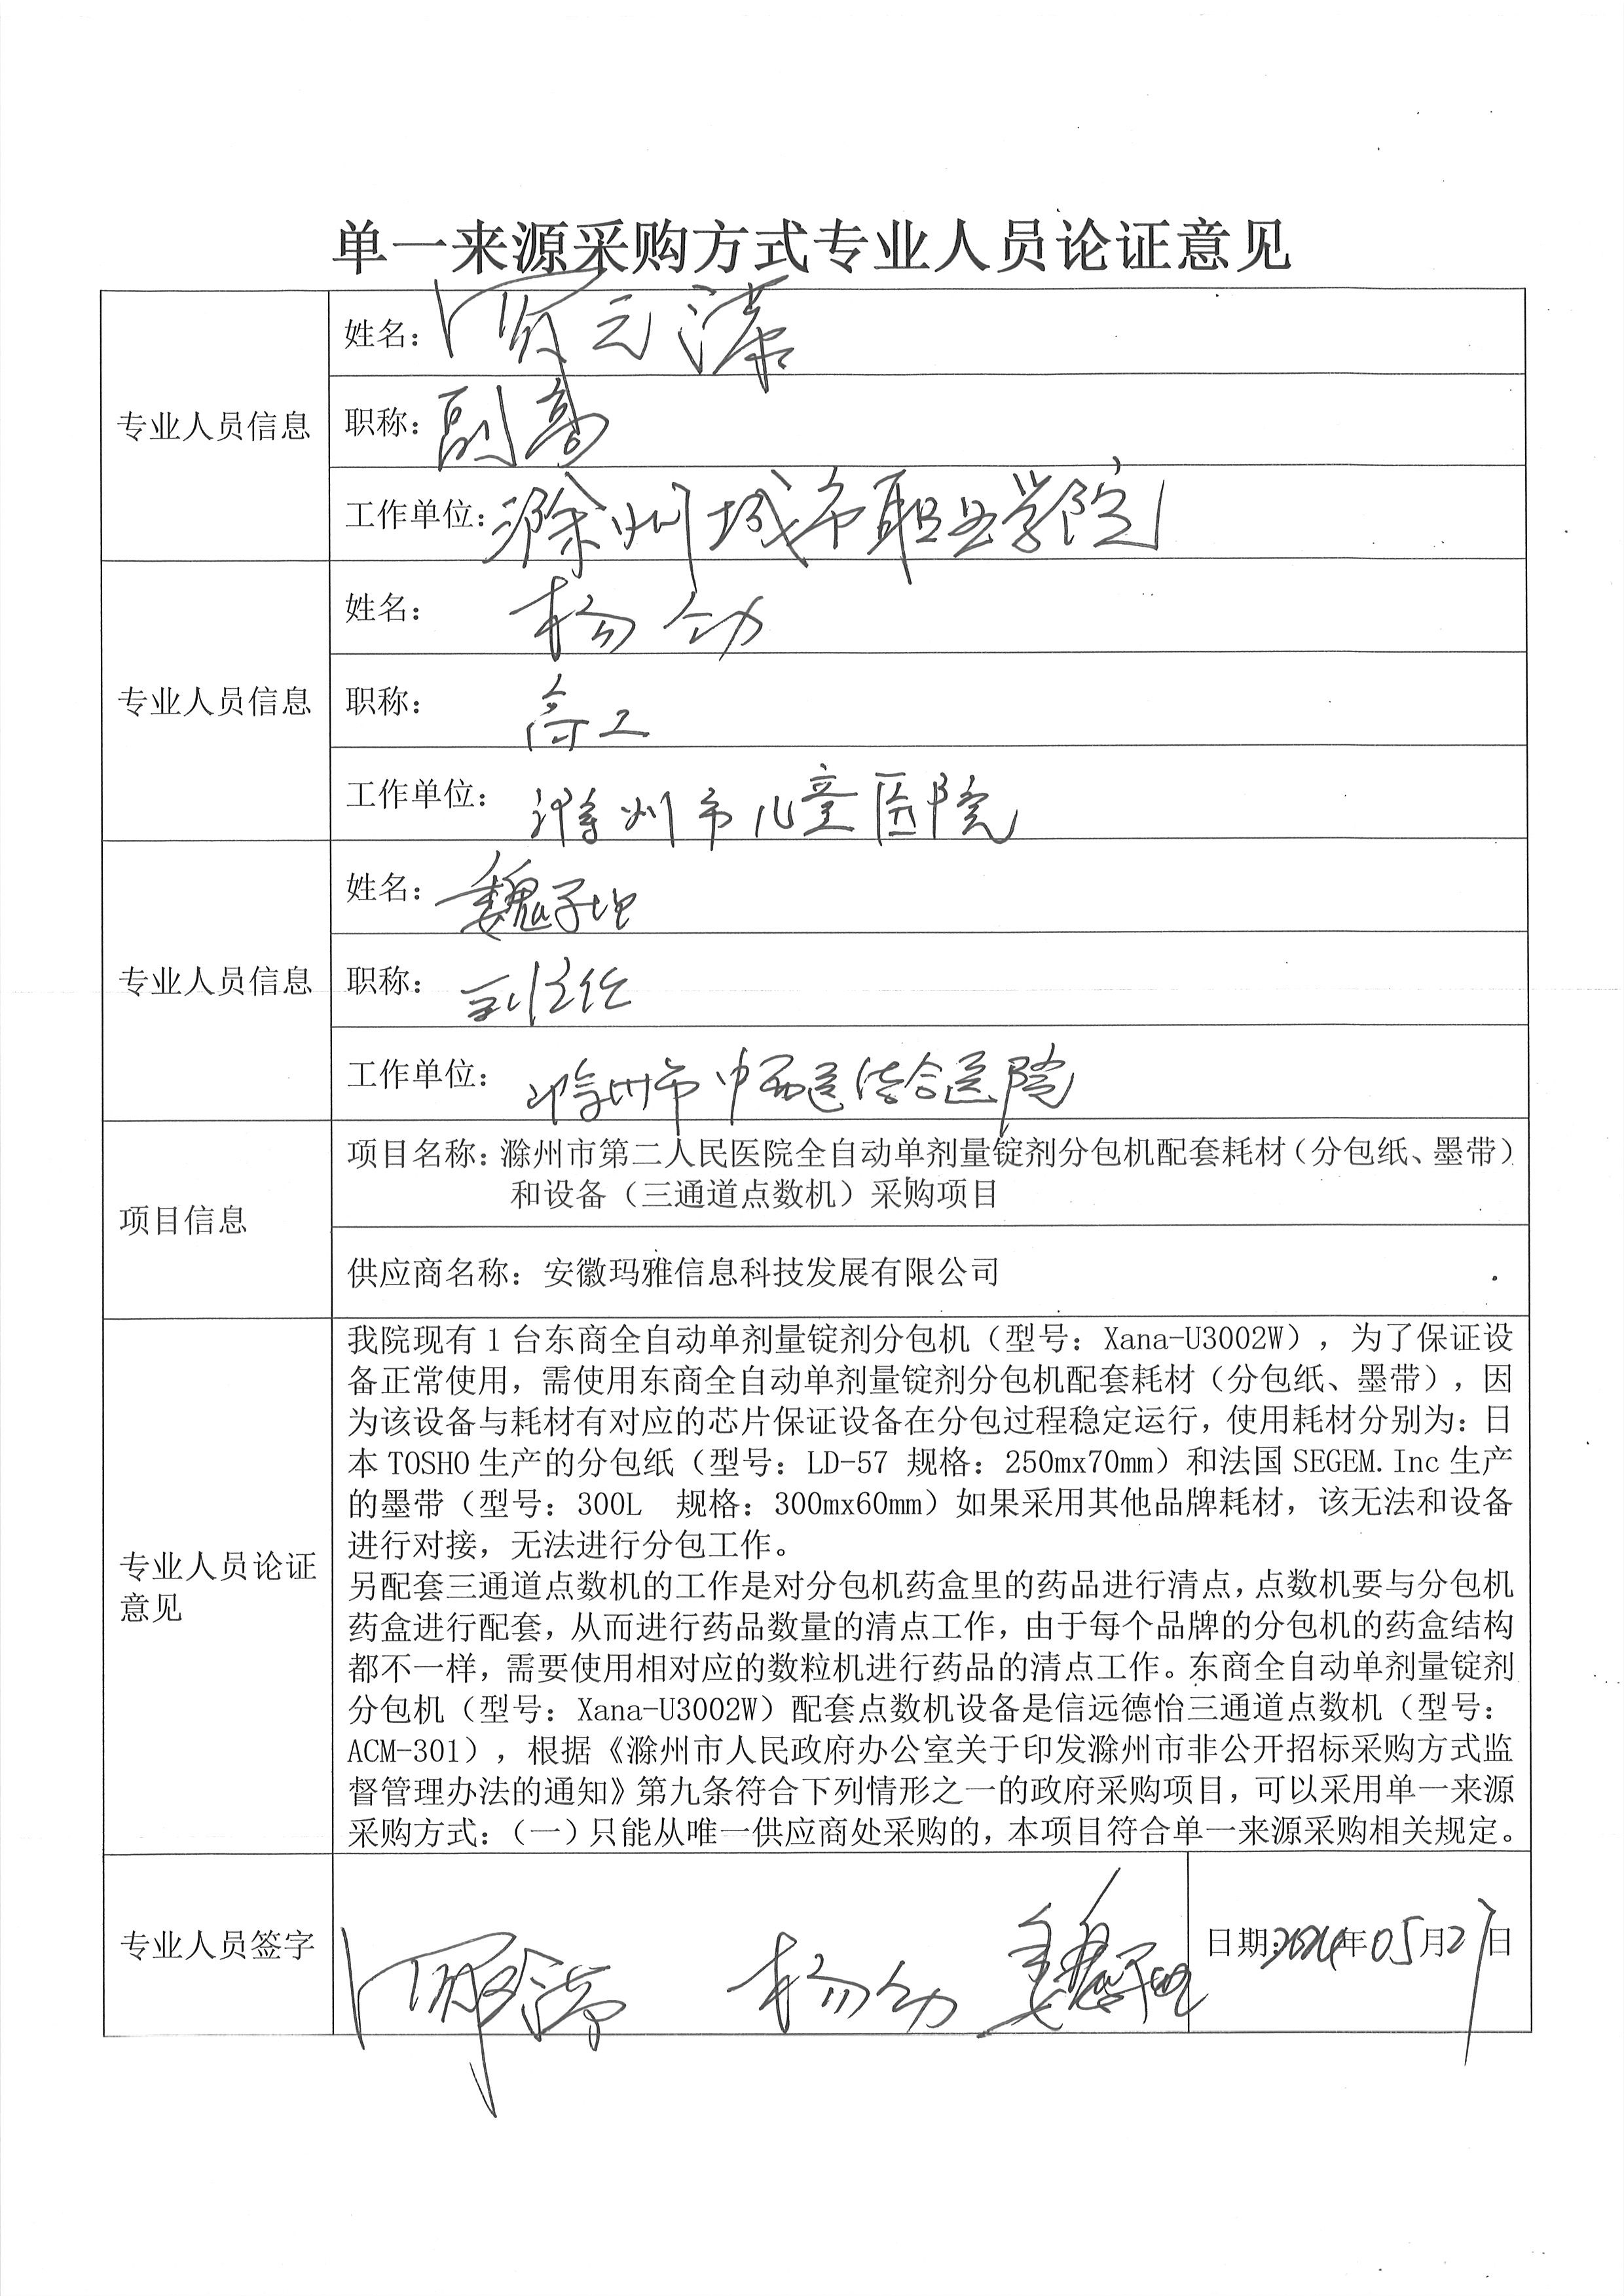 单一来源采购方式专业人员论证意见
专业人员信息
姓名：
职称：副高
工作单位：滁州城市职业学院
专业人员信息
姓名：杨
职称：高工
工作单位：滁州市儿童医院
专业人员信息
姓名：魏子
职称：副主任
工作单位：滁州市中西医结合医院
项目信息
项目名称：滁州市第二人民医院全自动单剂量锭剂分包机配套耗材（分包纸、墨带）
和设备（三通道点数机）采购项目
供应商名称：安徽玛雅信息科技发展有限公司
专业人员论证
意见
我院现有1台东商全自动单剂量锭剂分包机（型号：Xana-U3002W），为了保证设
备正常使用，需使用东商全自动单剂量锭剂分包机配套耗材（分包纸、墨带），因
为该设备与耗材有对应的芯片保证设备在分包过程稳定运行，使用耗材分别为：日
本TOSHO生产的分包纸（型号：LD-57 规格：250mx70mm）和法国SEGEM.Inc生产
的墨带（型号：300L 规格：300mx60mm）如果采用其他品牌耗材，该无法和设备
进行对接，无法进行分包工作。
另配套三通道点数机的工作是对分包机药盒里的药品进行清点，点数机要与分包机
药盒进行配套，从而进行药品数量的清点工作，由于每个品牌的分包机的药盒结构
都不一样，需要使用相对应的数粒机进行药品的清点工作。东商全自动单剂量锭剂
分包机（型号：Xana-U3002W）配套点数机设备是信远德怡三通道点数机（型号：
ACM-301），根据《滁州市人民政府办公室关于印发滁州市非公开招标采购方式监
督管理办法的通知》第九条符合下列情形之一的政府采购项目，可以采用单一来源
采购方式：（一）只能从唯一供应商处采购的，本项目符合单一来源采购相关规定。
专业人员签字
杨 魏子
日期：2024年05月27日